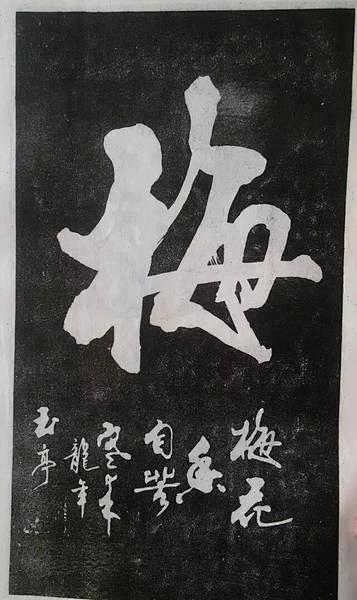 梅
梅花
香
自苦
寒来
龍年
玉亭